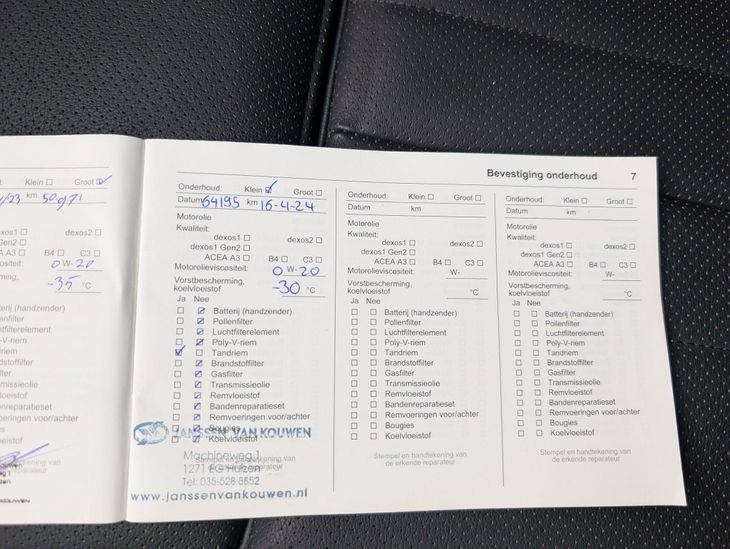 Bevestiging onderhoud 7
Klein Groot
/23 km 50.971
dexos2
Gen2
A3 B4 C3
0 W-20
-35 °C
(handzender)
Onderhoud: Klein Groot
Datum 64195 km 16-4-24
Motorolie
Kwaliteit:
dexos1 dexos2
dexos1 Gen2
ACEA A3 B4 C3
Motorolieviscositeit: 0 W-20
Vorstbescherming,
koelvloeistof -30 °C
Ja Nee
Batterij (handzender)
Pollenfilter
Luchtfilterelement
Poly-V-riem
Tandriem
Brandstoffilter
Gasfilter
Transmissieolie
Remvloeistof
Bandenreparatieset
Remvoeringen voor/achter
Bougies
Koelvloeistof
JANSSEN VAN KOUWEN
Machineweg 1
Stempel en handtekening van
1271 EG Huizen
de erkende reparateur
Tel: 035-528 8852
www.janssenvankouwen.nl
Onderhoud: Klein Groot
Datum km
Motorolie
Kwaliteit:
dexos1 dexos2
dexos1 Gen2
ACEA A3 B4 C3
Motorolieviscositeit: W-
Vorstbescherming,
koelvloeistof °C
Ja Nee
Batterij (handzender)
Pollenfilter
Luchtfilterelement
Poly-V-riem
Tandriem
Brandstoffilter
Gasfilter
Transmissieolie
Remvloeistof
Bandenreparatieset
Remvoeringen voor/achter
Bougies
Koelvloeistof
Stempel en handtekening van
de erkende reparateur
Onderhoud: Klein Groot
Datum km
Motorolie
Kwaliteit:
dexos1 dexos2
dexos1 Gen2
ACEA A3 B4 C3
Motorolieviscositeit: W-
Vorstbescherming,
koelvloeistof °C
Ja Nee
Batterij (handzender)
Pollenfilter
Luchtfilterelement
Poly-V-riem
Tandriem
Brandstoffilter
Gasfilter
Transmissieolie
Remvloeistof
Bandenreparatieset
Remvoeringen voor/achter
Bougies
Koelvloeistof
Stempel en handtekening van
de erkende reparateur